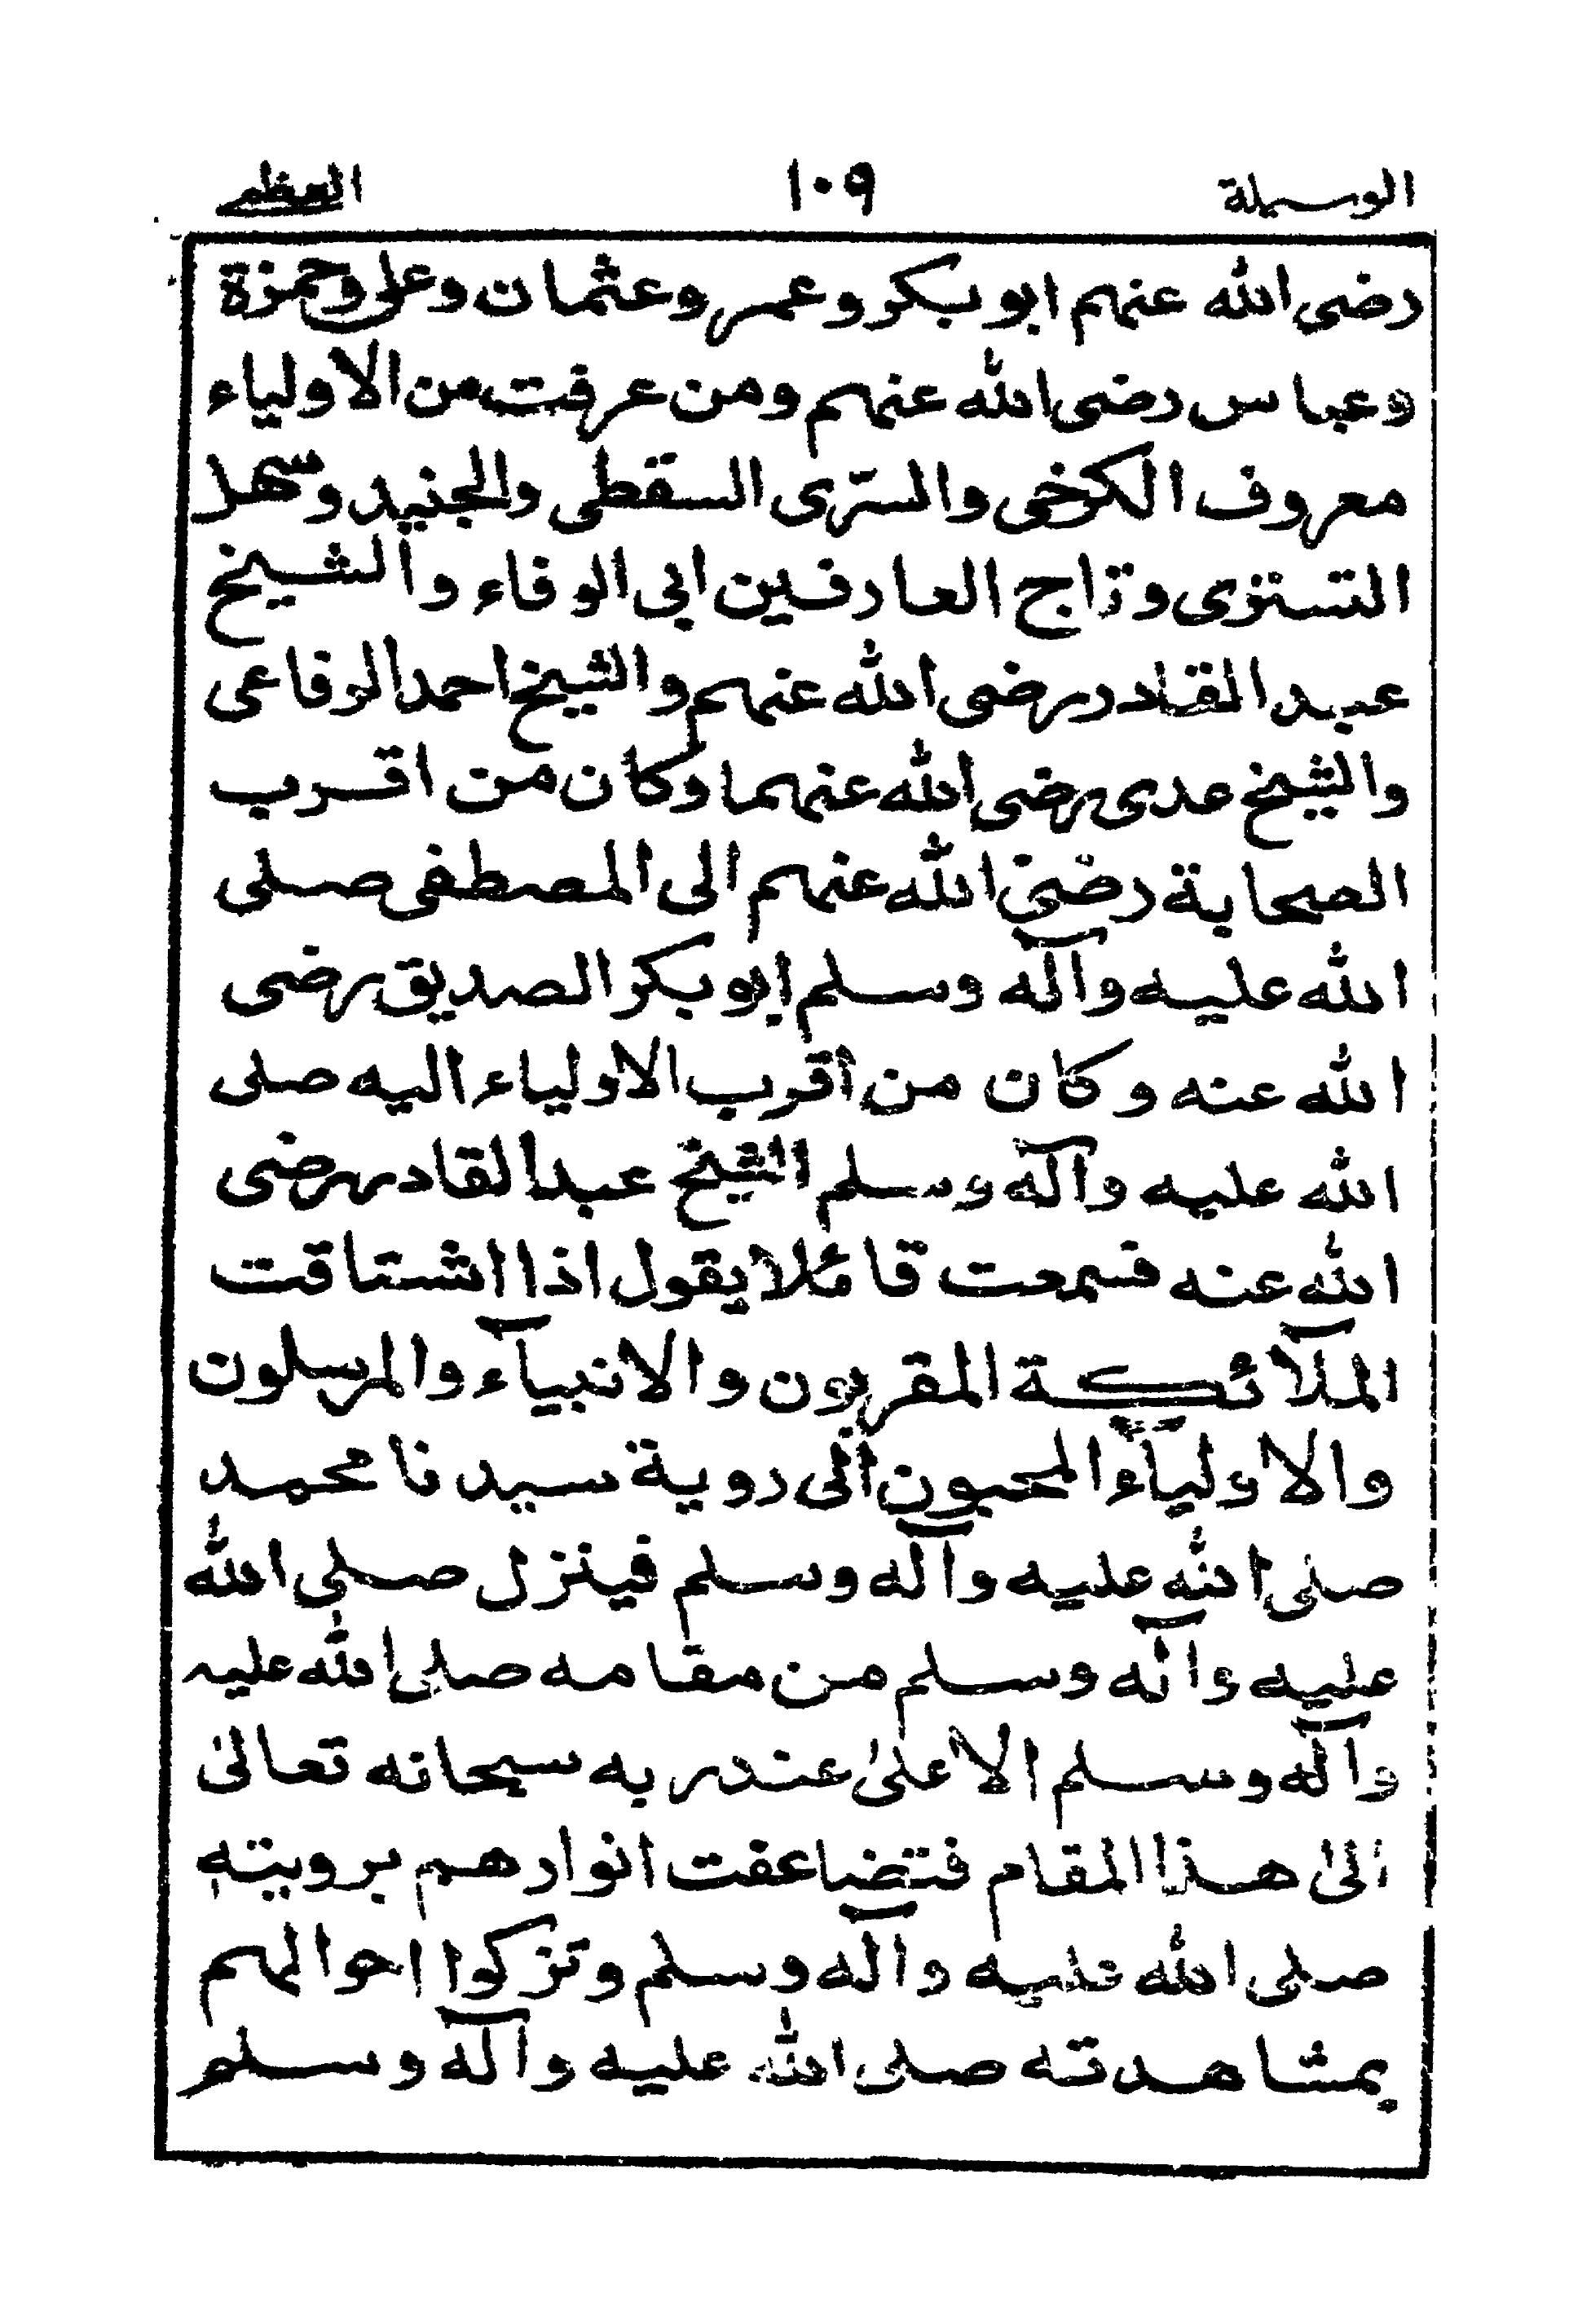 الوسيلة ١٠٩ العظمى
رضى الله عنهم ابو بكر وعمر وعثمان وعلى وحمزة
وعباس رضى الله عنهم ومن عرفت من الاولياء
معروف الكرخى والسّرى السقطى والجنيد وسهل
التستزى وتاج العارفين ابى الوفاء والشيخ
عبد القادر رضى الله عنهم والشيخ احمد الرفاعى
والشيخ عدى رضى الله عنهما وكان من اقرب
الصحابة رضى الله عنهم الى المصطفى صلى
الله عليه وآله وسلم ابو بكر الصديق رضى
الله عنه وكان من أقرب الاولياء اليه صلى
الله عليه وآله وسلم الشيخ عبد القادر رضى
الله عنه فسمعت قائلا يقول اذا اشتاقت
الملآئكة المقربون والانبيآء والمرسلون
والاوليآء المحبون الى روية سيدنا محمد
صلى الله عليه وآله وسلم فينزل صلى الله
عليه وآله وسلم من مقامه صلى الله عليه
وآله وسلم الاعلىٰ عند ربه سبحانه تعالىٰ
الىٰ هذا المقام فتضاعفت انوارهم برويته
صلى الله عليه وآله وسلم وتزكوا احوالهم
بمشاهدته صلى الله عليه وآله وسلم